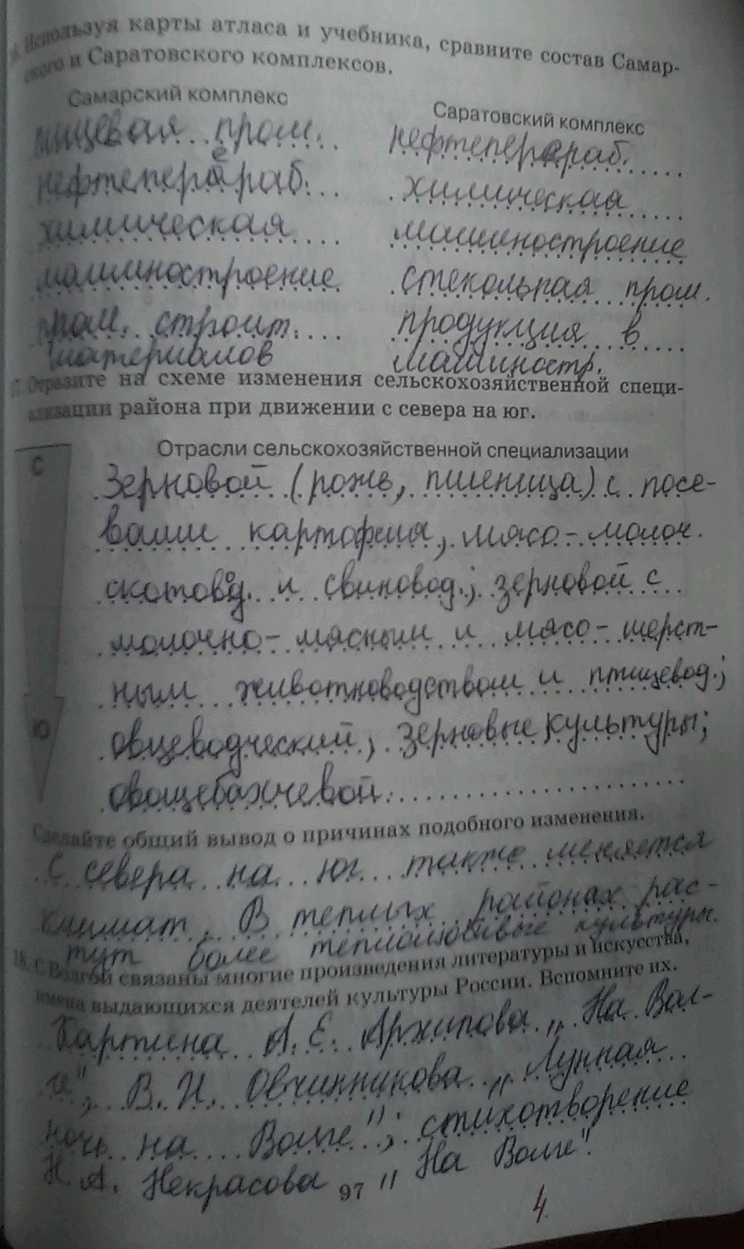 16. Используя карты атласа и учебника, сравните состав Самар-
ского и Саратовского комплексов.
Самарский комплекс
Саратовский комплекс
пищевая пром.
нефтеперераб.
нефтеперераб.
химическая
химическая
машиностроение
машиностроение
стекольная пром.
пром. строит.
материалов
продукция в
машиностр.
17. Отразите на схеме изменения сельскохозяйственной специ-
ализации района при движении с севера на юг.
С
Ю
Отрасли сельскохозяйственной специализации
Зерновой (рожь, пшеница) с посе-
вами картофеля, мясо-молоч.
скотовод. и свиновод.; зерновой с
молочно-мясным и мясо-шерст-
ным животноводством и птицевод.;
овцеводческий, зерновые культуры;
овощебахчевой.
Сделайте общий вывод о причинах подобного изменения.
С севера на юг также меняется
климат. В теплых районах рас-
тут более теплолюбивые культуры.
18. С Волгой связаны многие произведения литературы и искусства,
имена выдающихся деятелей культуры России. Вспомните их.
Картина А. Е. Архипова "На Вол-
ге", В. И. Овчинникова "Лунная
ночь на Волге"; стихотворение
Н. А. Некрасова "На Волге".
97
4